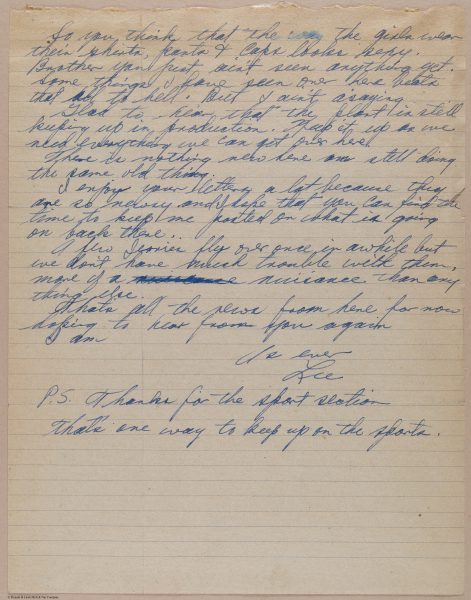 So you think that the way the girls wear
their shirts, pants & caps looks sexy.
Brother you just ain't seen anything yet.
Some things I have seen over here beats
that all to hell. But I ain't asaying.
Glad to hear that the plant is still
keeping up in production. Keep it up as we
need everything we can get over here.
There is nothing new here am still doing
the same old thing.
I enjoy your letters a lot because they
are so newsy and I hope that you can find the
time to keep me posted on what is going
on back there.
A few Jerries fly over once in awhile but
we don't have much trouble with them,
more of a nuisance than any
thing else.
Thats all the news from here for now
hoping to hear from you again
I am
As ever
Lee
P.S. Thanks for the sport section
that's one way to keep up on the sports.